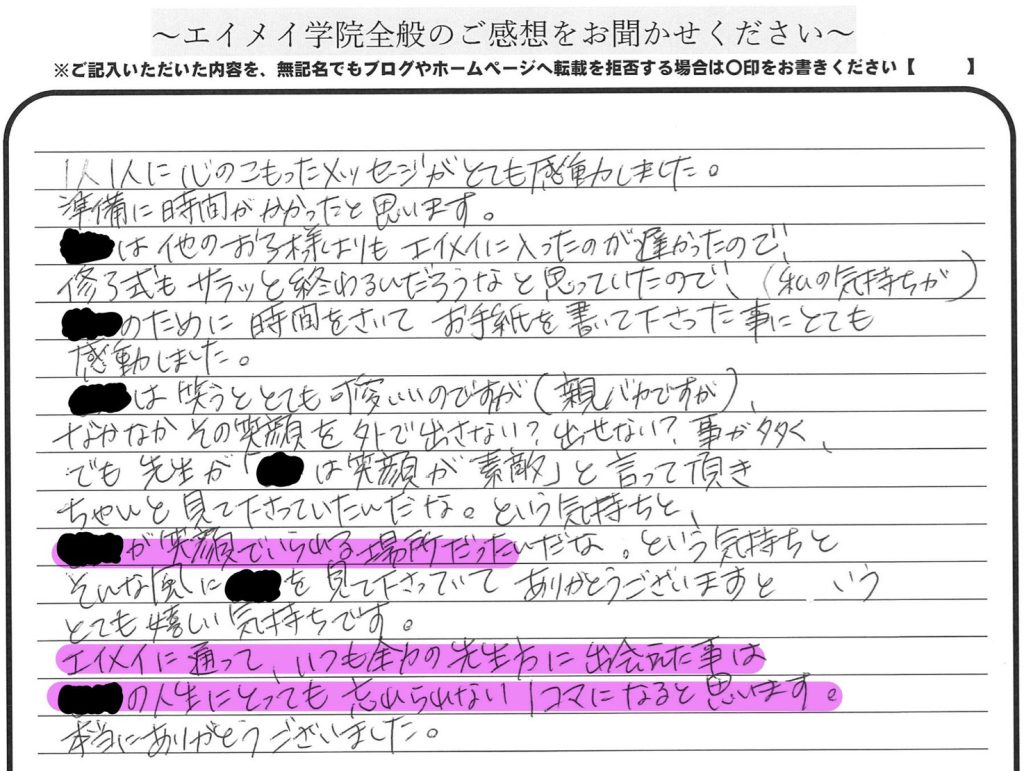 ～エイメイ学院全般のご感想をお聞かせください～
※ご記入いただいた内容を、無記名でもブログやホームページへ転載を拒否する場合は〇印をお書きください【　　　】
1人1人に心のこもったメッセージがとても感動しました。
準備に時間がかかったと思います。
は他のお子様よりも エイメイに入ったのが遅かったので、
修了式も サラッと終わるんだろうなと思っていたので、(私の気持ちが)
のために 時間をさいて お手紙を書いて下さった事にとても
感動しました。
は笑うととても可愛いいのですが(親バカですが)、
なかなか その笑顔を外で出さない？出せない？事が多く、
でも 先生が「 は笑顔が素敵」と言って頂き
ちゃんと見て下さっていたんだな。という気持ちと、
が笑顔でいられる場所だったんだな。という気持ちと
そんな風に を見て下さっていて ありがとうございますと いう
とても嬉しい気持ちです。
エイメイに通って、いつも全力の先生方に出会えた事は
の人生にとっても忘れられない1コマになると思います。
本当にありがとうございました。